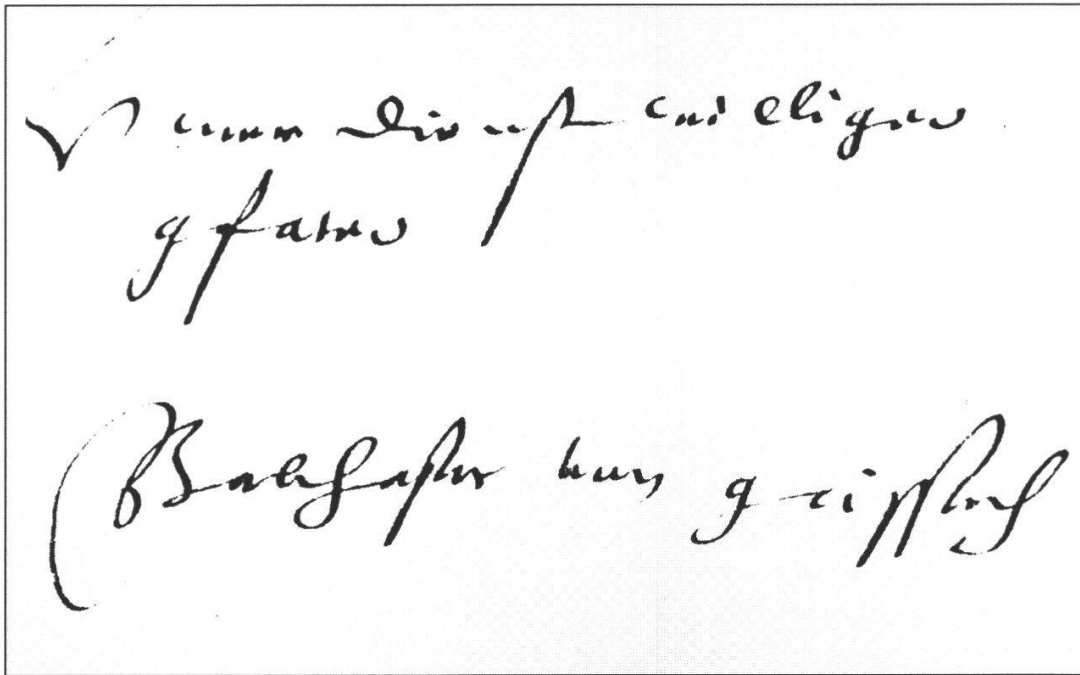 V euwer dienst williger
gfater
Balthaser von grissach